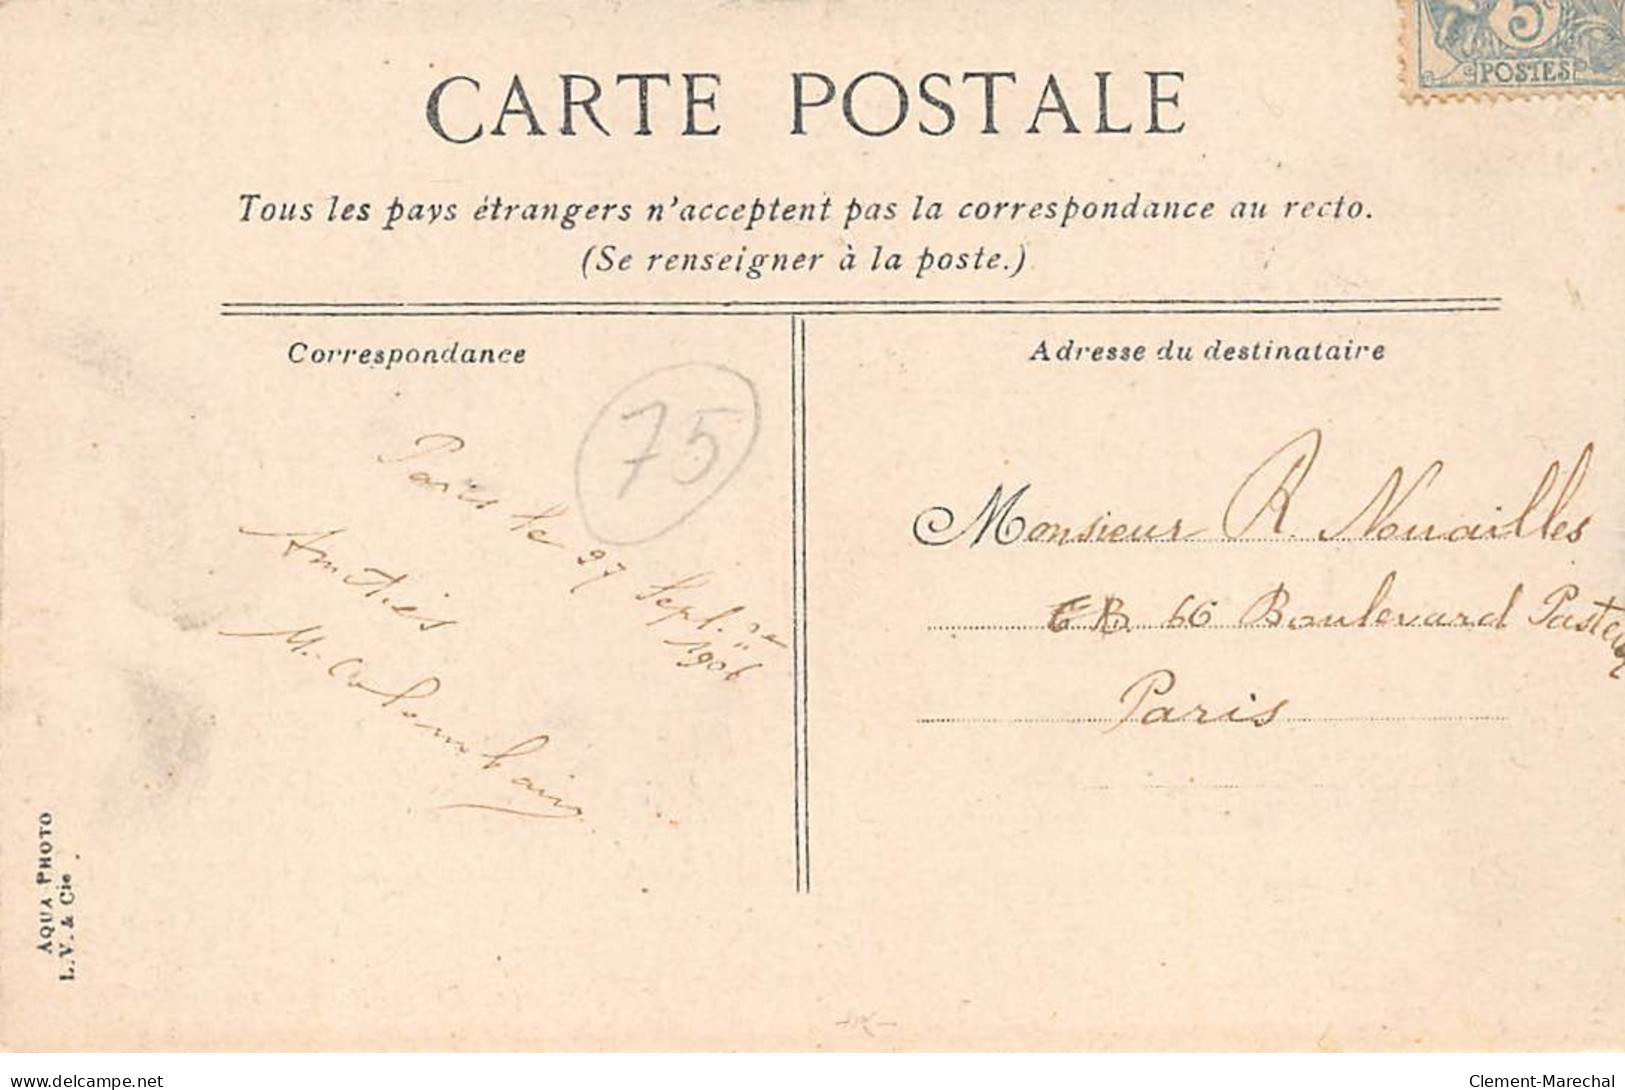 5c
POSTES
CARTE POSTALE
Tous les pays étrangers n'acceptent pas la correspondance au recto.
(Se renseigner à la poste.)
Correspondance
Adresse du destinataire
75
Paris le 27 Sept.
1906
M. Colombain
Monsieur R. Nouailles
66 Boulevard Pasteur
Paris
AQUA PHOTO
L.V. & Cie
delcampe.net
Clement-Marechal